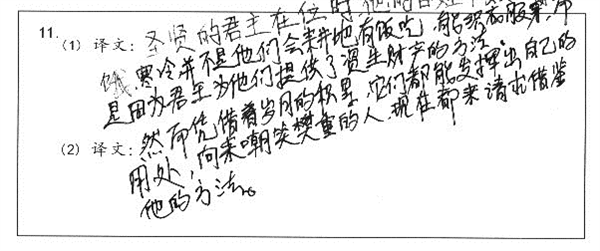 11.
(1) 译文：圣贤的君主在位时，他们的百姓不
饿寒冷并不是他们会耕地有饭吃，能织布服穿，而
是因为君王为他们提供了资生财产的方法。
(2) 译文：然而凭借着岁月的积累，它们都能发挥出自己的
用处，向来嘲笑樊重的人，现在都来请求借鉴
他的方法。